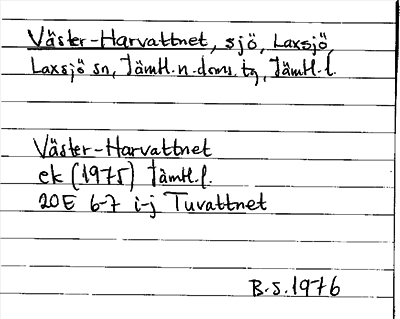 Väster-Harvattnet, sjö, Laxsjö
Laxsjö sn, Jämtl. n. doms. tg, Jämtl. l.
Väster-Harvattnet
ek (1975) Jämtl. l.
20E 6-7 i-j Tuvattnet
B.S. 1976